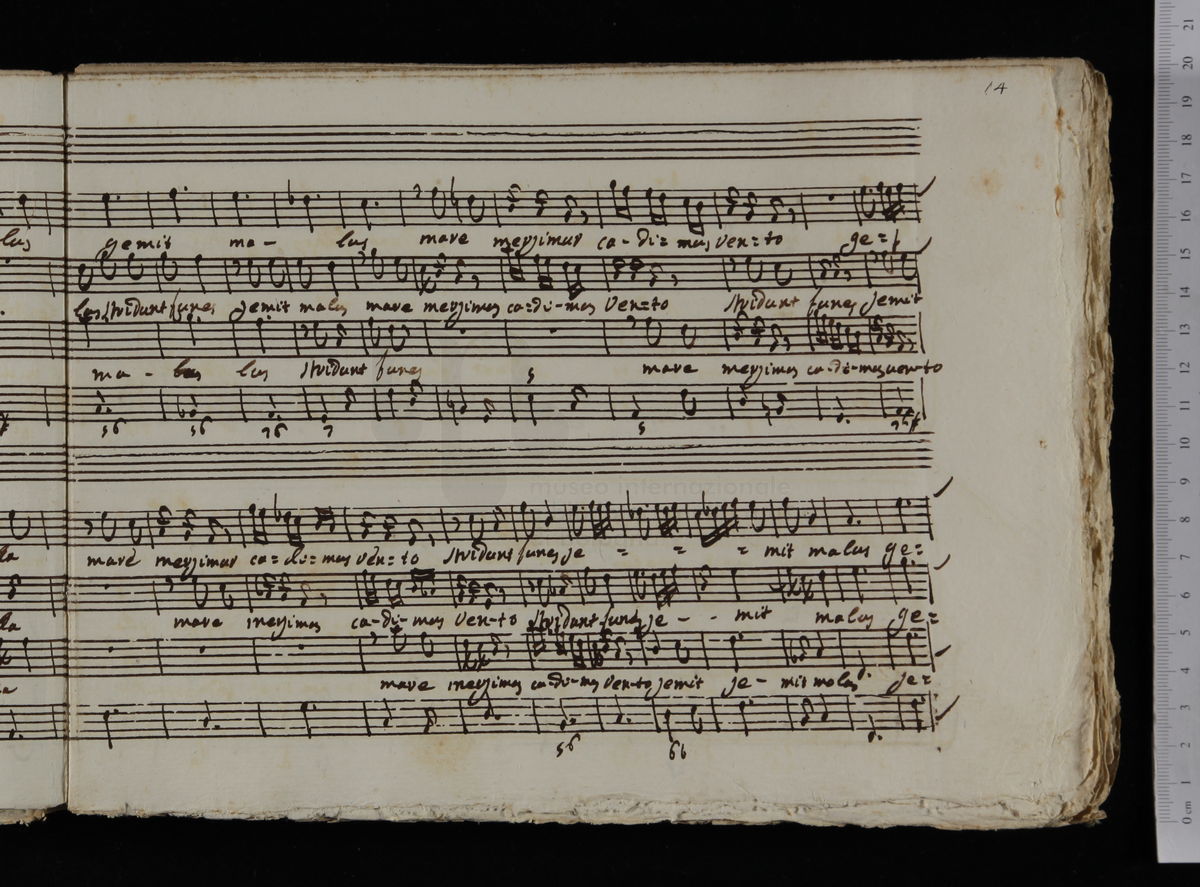 14
lus gemit ma - lus mare mergimur ca - di = mus ven = to ge =
las stridunt funes gemit malus mare mergimus ca = di - mus ven = to stridunt funes gemit
ma - lus stridunt funes mare mergimus ca - di - mus uen - to
5
56 56 76 7 5
museo internazionale
mare mergimur ca = di = mus ven = to stridunt funes ge = = = mit malus ge =
mare mergimus ca - di - mus ven - to stridunt funes ge - - mit malus ge =
mare mergimus ca - di - mus ven - to gemit ge - mit malus ge =
56 66
21
20
19
18
17
16
15
14
13
12
11
10
9
8
7
6
5
4
3
2
1
0 cm